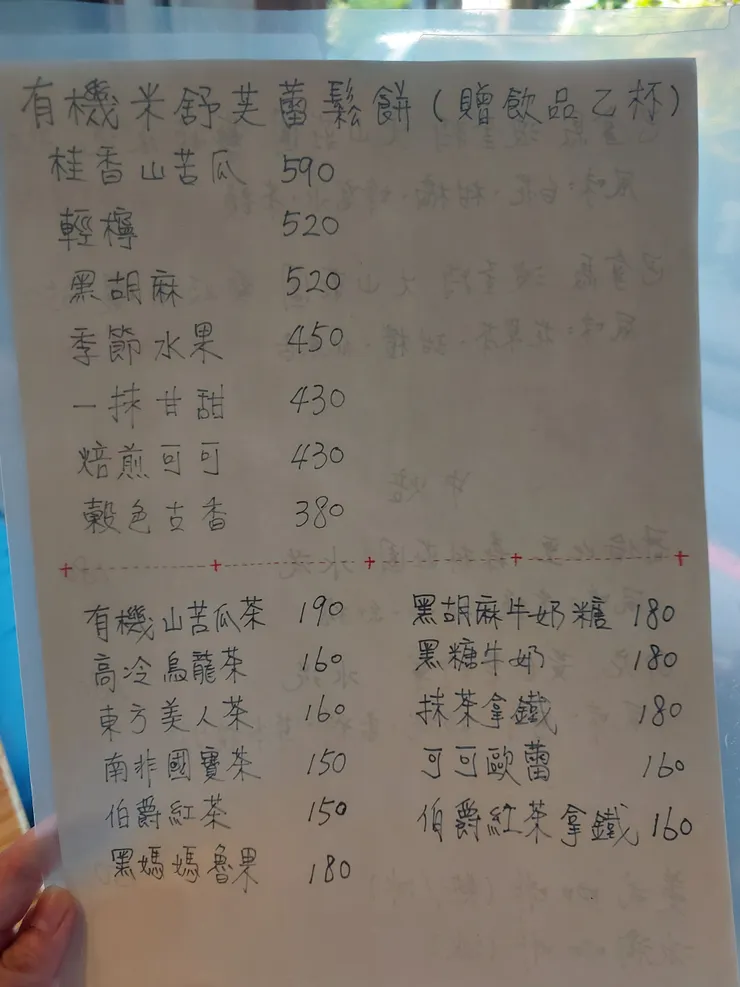 有機米舒芙蕾鬆餅(贈飲品乙杯)
桂香山苦瓜 590
輕檸 520
黑胡麻 520
季節水果 450
一抹甘甜 430
焙煎可可 430
穀色古香 380
有機山苦瓜茶 190
高冷烏龍茶 160
東方美人茶 160
南非國寶茶 150
伯爵紅茶 150
黑媽媽魯果 180
黑胡麻牛奶糖 180
黑糖牛奶 180
抹茶拿鐵 180
可可歐蕾 160
伯爵紅茶拿鐵 160